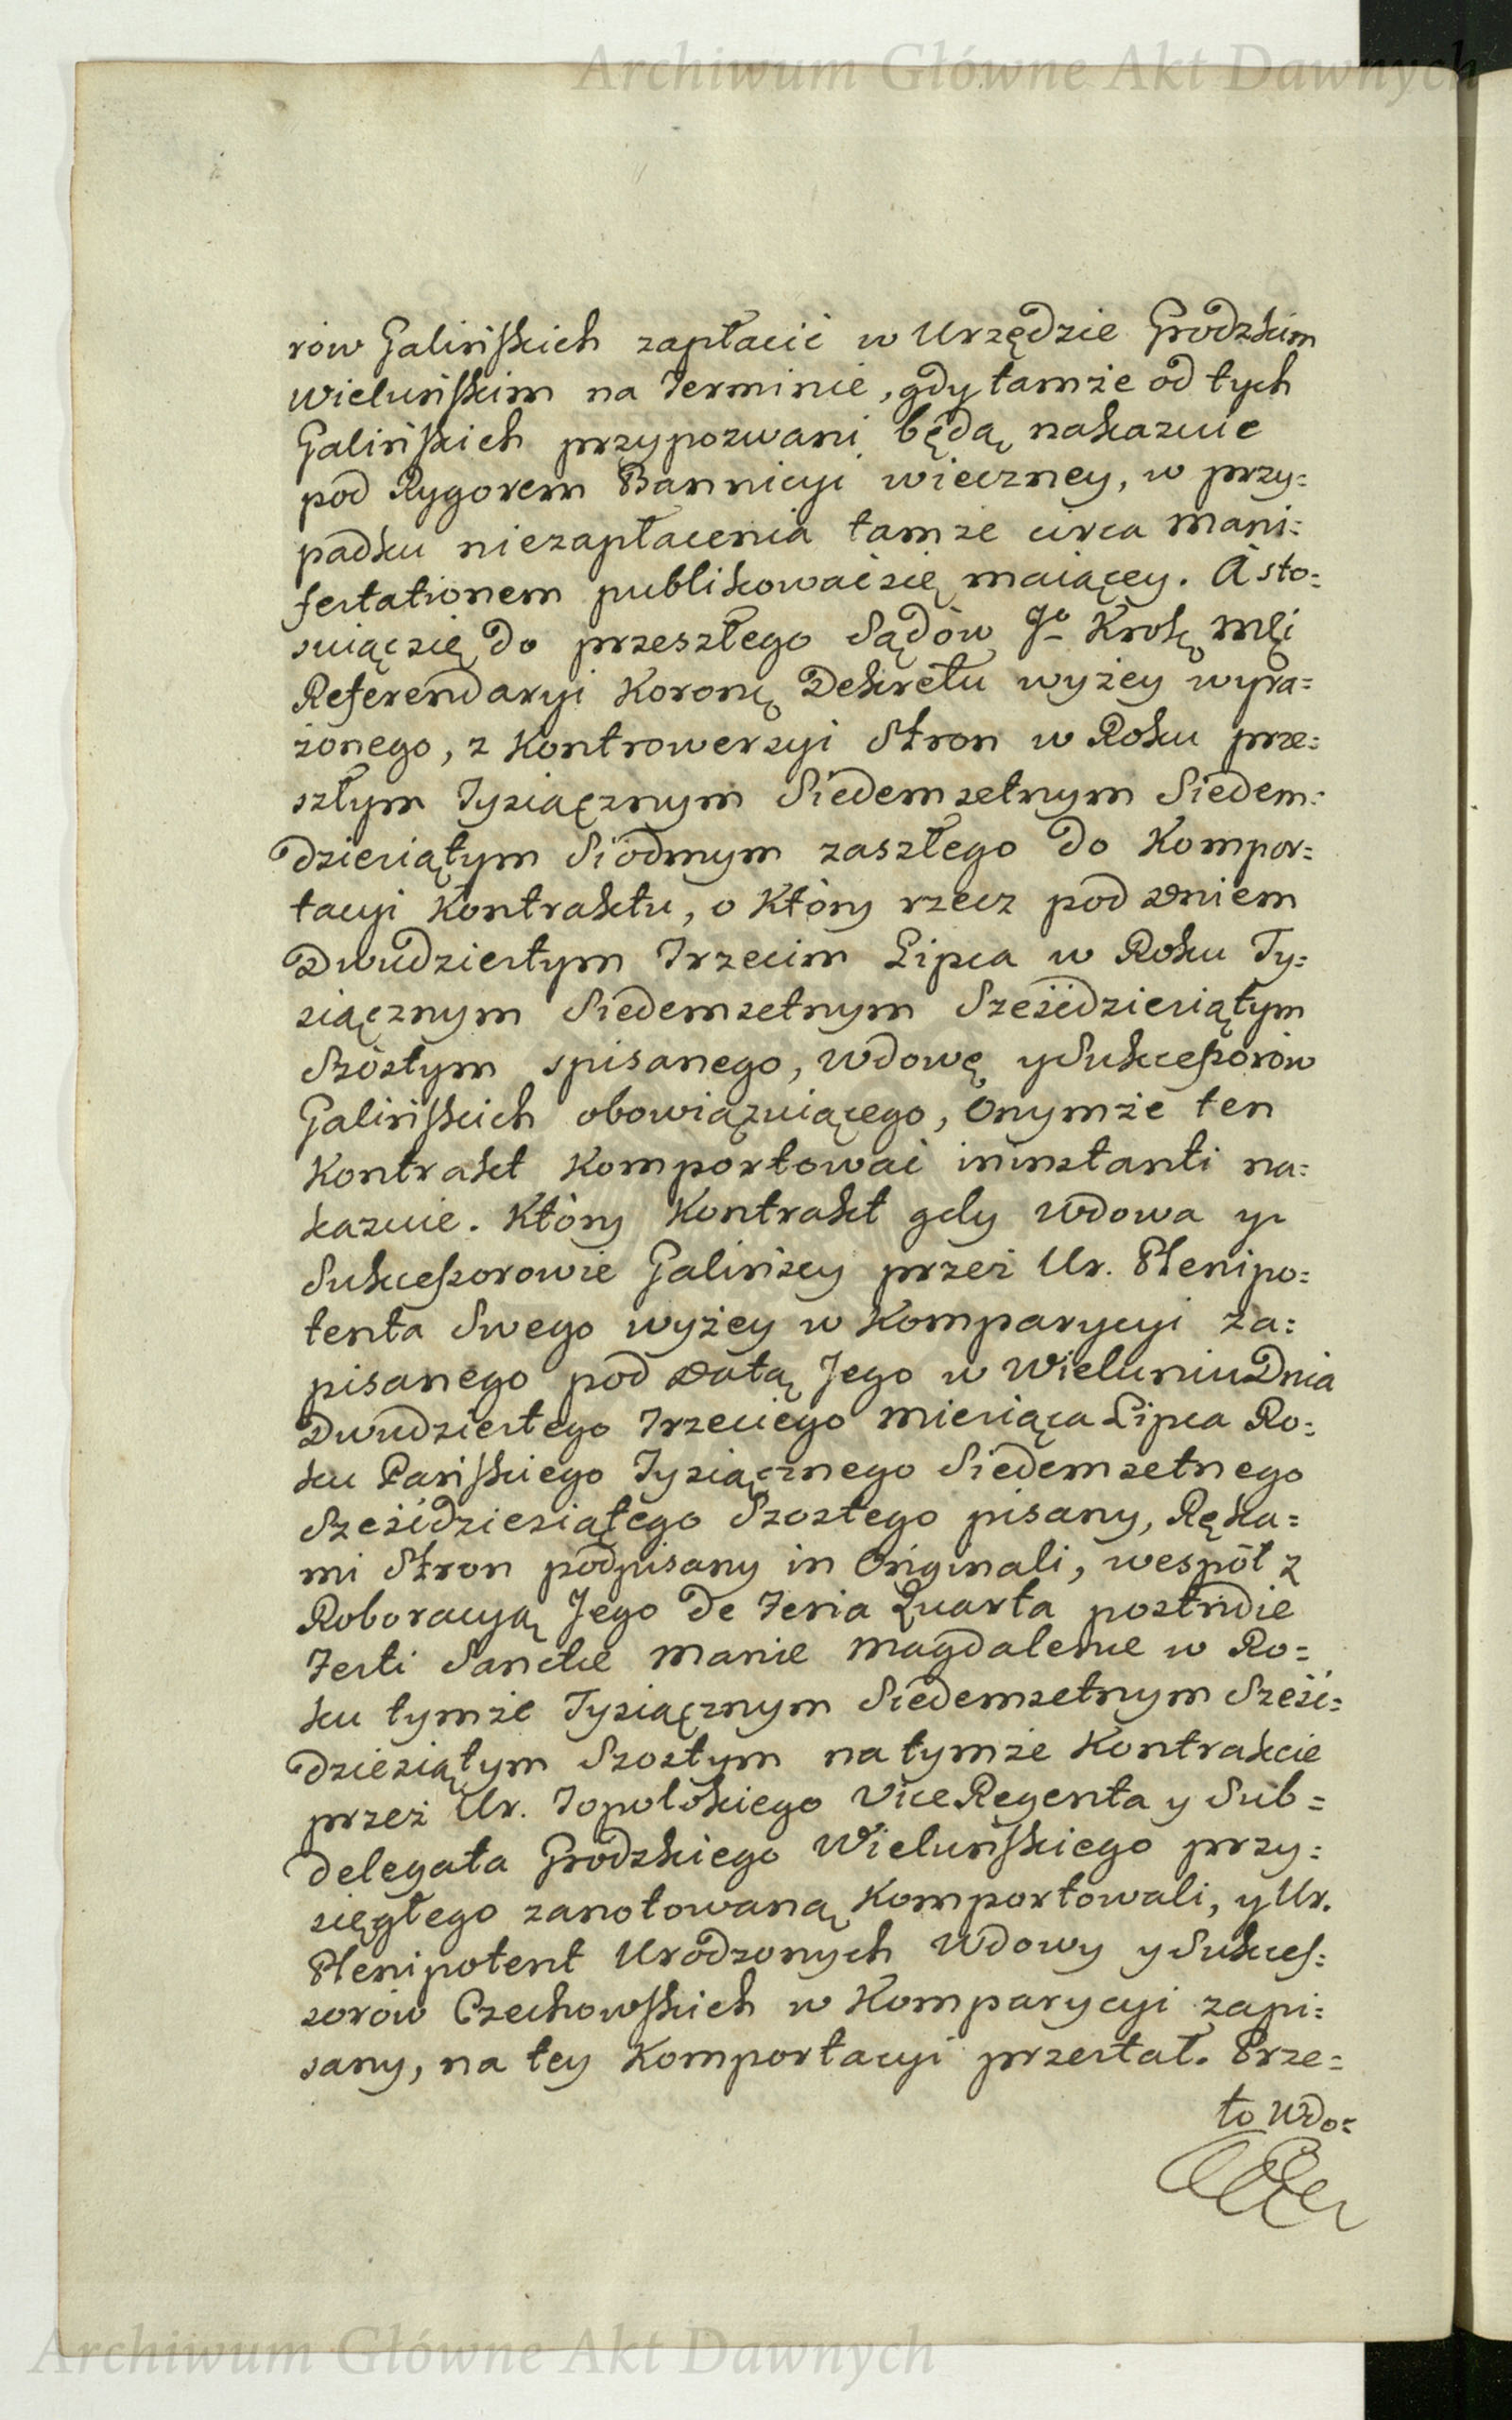 Archiwum Główne Akt Dawnych
rów Galińskich zapłacić w Urzędzie Grodzkim
Wieluńskim na Terminie, gdy tamże od tych
Galińskich przypozwani będą, nakazuie
pod Rygorem Bannicyi wieczney, w przy=
padku niezapłacenia tamże circa Mani=
festationem publikować się maiącey. A sto=
suiąc się do przeszłego Sądów Jº Krolę Mći
Referendaryi Koronę Dekretu wyżey wyra=
żonego, z Kontrowersyi Stron w Roku prze=
szłym Tysiącznym Siedemsetnym Siedem=
dziesiątym Siodmym zaszłego do Kompor=
tacyi Kontraktu, o który rzecz pod Dniem
Dwudziestym Trzecim Lipca w Roku Ty=
siącznym Siedemsetnym Sześćdziesiątym
Szóstym spisanego, Wdowę y Sukcessorów
Galińskich obowiązuiącego, Onymże ten
Kontrakt Komportować ininstanti na=
kazuie. Który Kontrakt gdy Wdowa y
Sukcessorowie Galińscy przez Ur. Plenipo=
tenta Swego wyżey w Komparycyi za=
pisanego pod Datą Jego w Wieluniu Dnia
Dwudziestego Trzeciego Miesiąca Lipca Ro=
ku Pańskiego Tysiącznego Siedemsetnego
Sześćdziesiątego Szostego pisany, Ręka=
mi Stron podpisany in Originali, wespół z
Roboracyą Jego de Feria Quarta postridie
Festi Sanctæ Mariæ Magdalenæ w Ro=
ku tymże Tysiącznym Siedemsetnym Sześć=
dziesiątym Szostym na tymże Kontrakcie
przez Ur. Topolskiego ViceRegenta y Sub=
delegata Grodzkiego Wieluńskiego przy=
sięgłego zanotowaną Komportowali, y Ur.
Plenipotent Urodzonych Wdowy y Sukces=
sorów Czechowskich w Komparycyi zapi=
sany, na tey Komportacyi przestał. Prze=
to Wdo=
Archiwum Główne Akt Dawnych